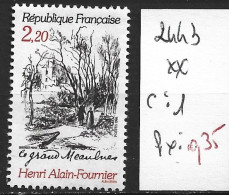 République Française
2,20
le grand Meaulnes
Henri Alain-Fournier
2443
xx
c: 1
Px: 0,35